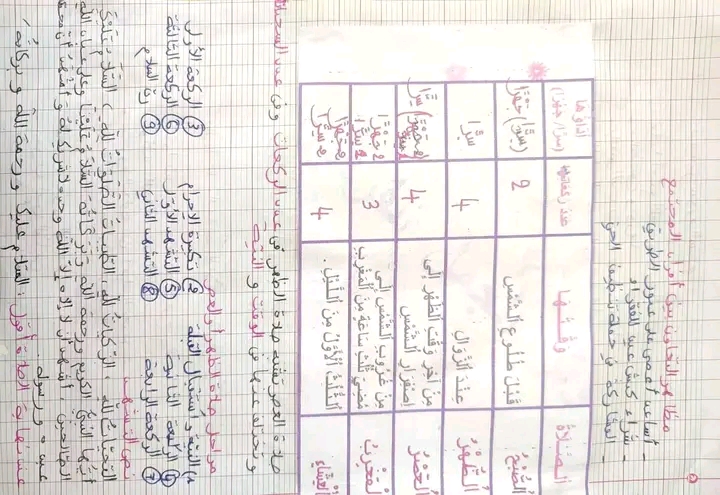 مظاهر التعاون بين أفراد المجتمع
أساعد أعمى على عبور الطريق
- شراء كبش عيد للفقراء
- المشاركة في حملة تنظيف الحي
الصَّلَاةُ وقتُها عدد ركعاتها أداؤها (سرًّا/جهرًا)
الصُّبْحُ قَبْلَ طُلُوعِ الشَّمْسِ 2 (سِرًّا) جَهْرًا
الظُّهْرُ عِنْدَ الزَّوَالِ 4 سِرًّا
العَصْرُ مِن آخِرِ وَقْتِ الظُّهْرِ إِلَى اصفرار الشَّمْسِ 4 (جَهْرًا) سِرًّا
المَغْرِبُ مِن غُرُوبِ الشَّمْسِ إِلَى مُضِيِّ ثُلُثِ سَاعَةٍ مِنَ المَغْرِبِ 3 جَهْرًا سِرًّا
العِشَاءُ الثُّلُثُ الأَوَّلُ مِنَ اللَّيْلِ. 4 جَهْرًا سِرًّا
صلاة العصر تشبه صلاة الظهر في عدد الركعات وفي عدد السجدات
وتختلف عنها في الوقت والنية
مراحل صلاة الظهر أو العصر
1 النية واستقبال القبلة 2 تكبيرة الإحرام 3 الركعة الأولى
4 الركعة الثانية 5 التشهد الأول 6 الركعة الثالثة
7 الركعة الرابعة 8 التشهد الثاني 9 السلام
نص التشهد
التحيات لله، الزكيات لله، الطيبات الصلوات لله، السلام عليك
أيها النبي الكريم ورحمة الله وبركاته السلام علينا وعلى عباد الله
الصالحين أشهد أن لا إله إلا الله وحده لا شريك له وأشهد أن محمدا
عبده ورسوله
عند نهاية الصلاة أقول: السلام عليكم ورحمة الله وبركاته